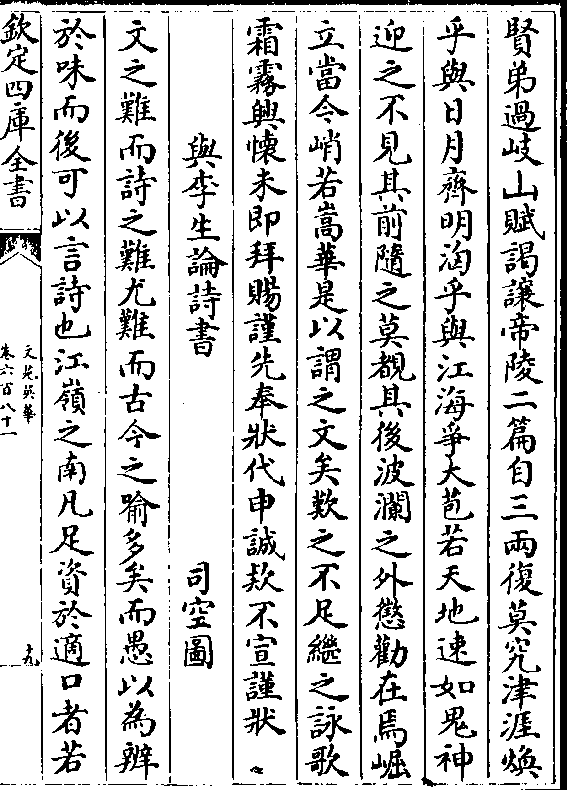 賢弟過岐山賦謁讓帝陵二篇自三兩復莫究津涯煥
乎與日月齊明洶乎與江海爭大苞若天地速如鬼神
迎之不見其前隨之莫覩其後波瀾之外懲勸在焉崛
立當今峭若嵩華是以謂之文矣歎之不足繼之詠歌
霜霧興懐未即拜賜謹先奉狀代申誠欵不宣謹狀
與李生論詩書　司空圖
文之難而詩之難尤難而古今之喻多矣而愚以為辨
於味而後可以言詩也江嶺之南凡足資於適口者若
欽定四庫全書
文苑英華
卷六百八十一
十九